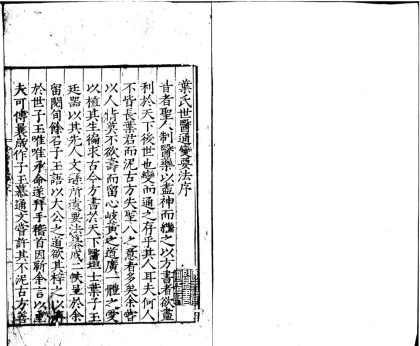 葉氏世醫通變要法序
昔者聖人制醫藥以盡神而繼之以方書者欲盡
利於天下後世也變而通之存乎其人耳夫何人
不皆長葉君而泥古方失聖人之意者多矣余嘗
以人情莫不欲壽而留心岐黃之道廣一體之愛
以植其生徧求古今方書於天下醫士葉子王
廷器以其先人文所遺要法集成二帙呈於余
留閱旬餘召子王語以大公之道欲其梓之以
於世子王唯唯承命遂拜手稽首因祈余言以重
夫可傳襲成作子王慕通文嘗許其不泥古方善